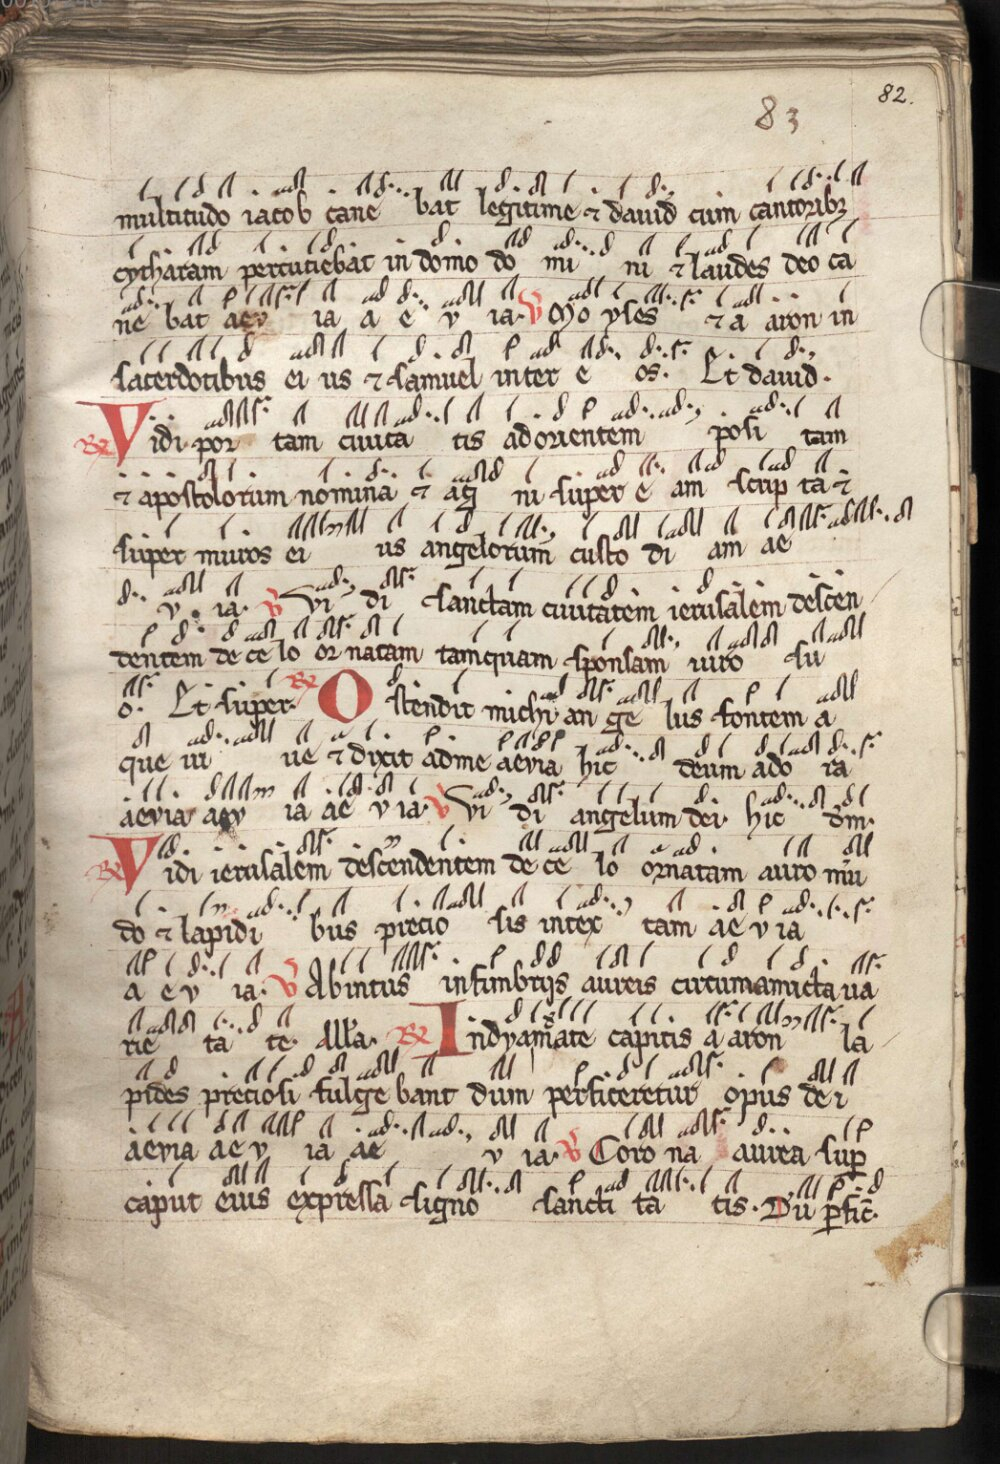 82.
83
multitudo iacob cane bat legitime ⁊ dauid cum cantoribꝫ
cytharam percutiebat in domo do mi ni ⁊ laudes deo ca
ne bat aev ia a e v ia. V Mo yses ⁊ a aron in
sacerdotibus ei us ⁊ samuel inter e os. Et dauid.
R Vidi por tam ciuita tis ad orientem posi tam
⁊ apostolorum nomina ⁊ ag ni super e am scrip ta ⁊
super muros ei us angelorum custo di am ae
v ia. V Vi di sanctam ciuitatem ierusalem descen
dentem de ce lo or natam tamquam sponsam uiro su
o. Et super. R O stendit michi an ge lus fontem a
que ui ue ⁊ dixit ad me aevia hic deum ado ra
aevia aev ia ae v ia. V Vi di angelum dei. hic dm̄.
R Vidi ierusalem descendentem de ce lo ornatam auro mū
do ⁊ lapidi bus precio sis intex tam ae v ia
a e v ia. V Abintus infimbrijs aureis circumamicta ua
rie ta te. All'a. R Indyamate capitis a aron la
pides preciosi fulge bant dum perficeretur opus de i
aevia ae v ia ae v ia. V Coro na aurea suꝑ
caput eius expressa signo sancti ta tis. Dū ꝑfic̄.